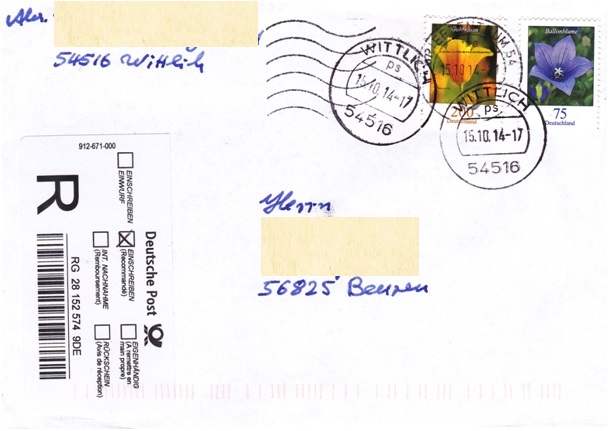 Abs.
54516 Wittlich
WITTLICH
ps
15.10.14-17
54516
15.10.14-17
Goldmohn
200
Deutschland
WITTLICH
ps
15.10.14-17
54516
Ballonblume
75
Deutschland
912-671-000
R
EINSCHREIBEN
EINWURF
EINSCHREIBEN
(Recommandé)
INT. NACHNAHME
(Remboursement)
EIGENHÄNDIG
(A remettre en
main propre)
RÜCKSCHEIN
(Avis de réception)
Deutsche Post
RG 28 152 574 9DE
Herrn
56825 Beuren